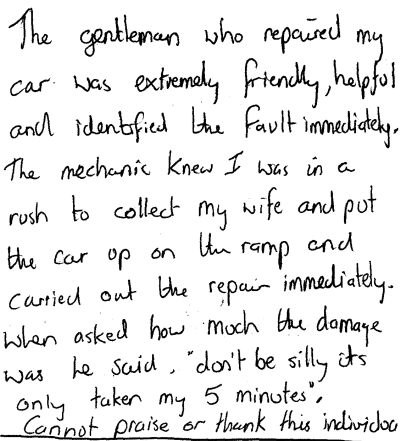 The gentleman who repaired my
car was extremely friendly, helpful
and identified the fault immediately.
The mechanic knew I was in a
rush to collect my wife and put
the car up on the ramp and
carried out the repair immediately.
When asked how much the damage
was he said, "don't be silly its
only taken my 5 minutes".
Cannot praise or thank this